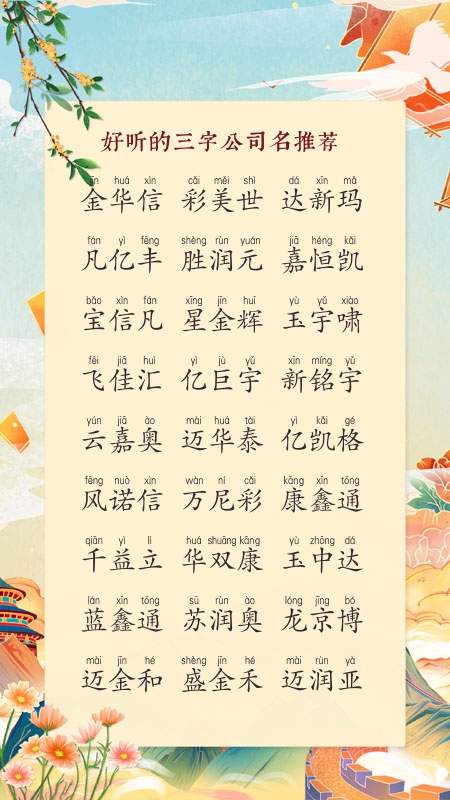 好听的三字公司名推荐
jīn huá xìn cǎi měi shì dá xīn mǎ
金华信 彩美世 达新玛
fán yì fēng shèng rùn yuán jiā héng kǎi
凡亿丰 胜润元 嘉恒凯
bǎo xìn fán xīng jīn huī yù yǔ xiào
宝信凡 星金辉 玉宇啸
fēi jiā huì yì jù yǔ xīn míng yǔ
飞佳汇 亿巨宇 新铭宇
yún jiā ào mài huá tài yì kǎi gé
云嘉奥 迈华泰 亿凯格
fēng nuò xìn wàn ní cǎi kāng xīn tōng
风诺信 万尼彩 康鑫通
qiān yì lì huá shuāng kāng yù zhōng dá
千益立 华双康 玉中达
lán xīn tōng sū rùn ào lóng jīng bó
蓝鑫通 苏润奥 龙京博
mài jīn hé shèng jīn hé mài rùn yà
迈金和 盛金禾 迈润亚